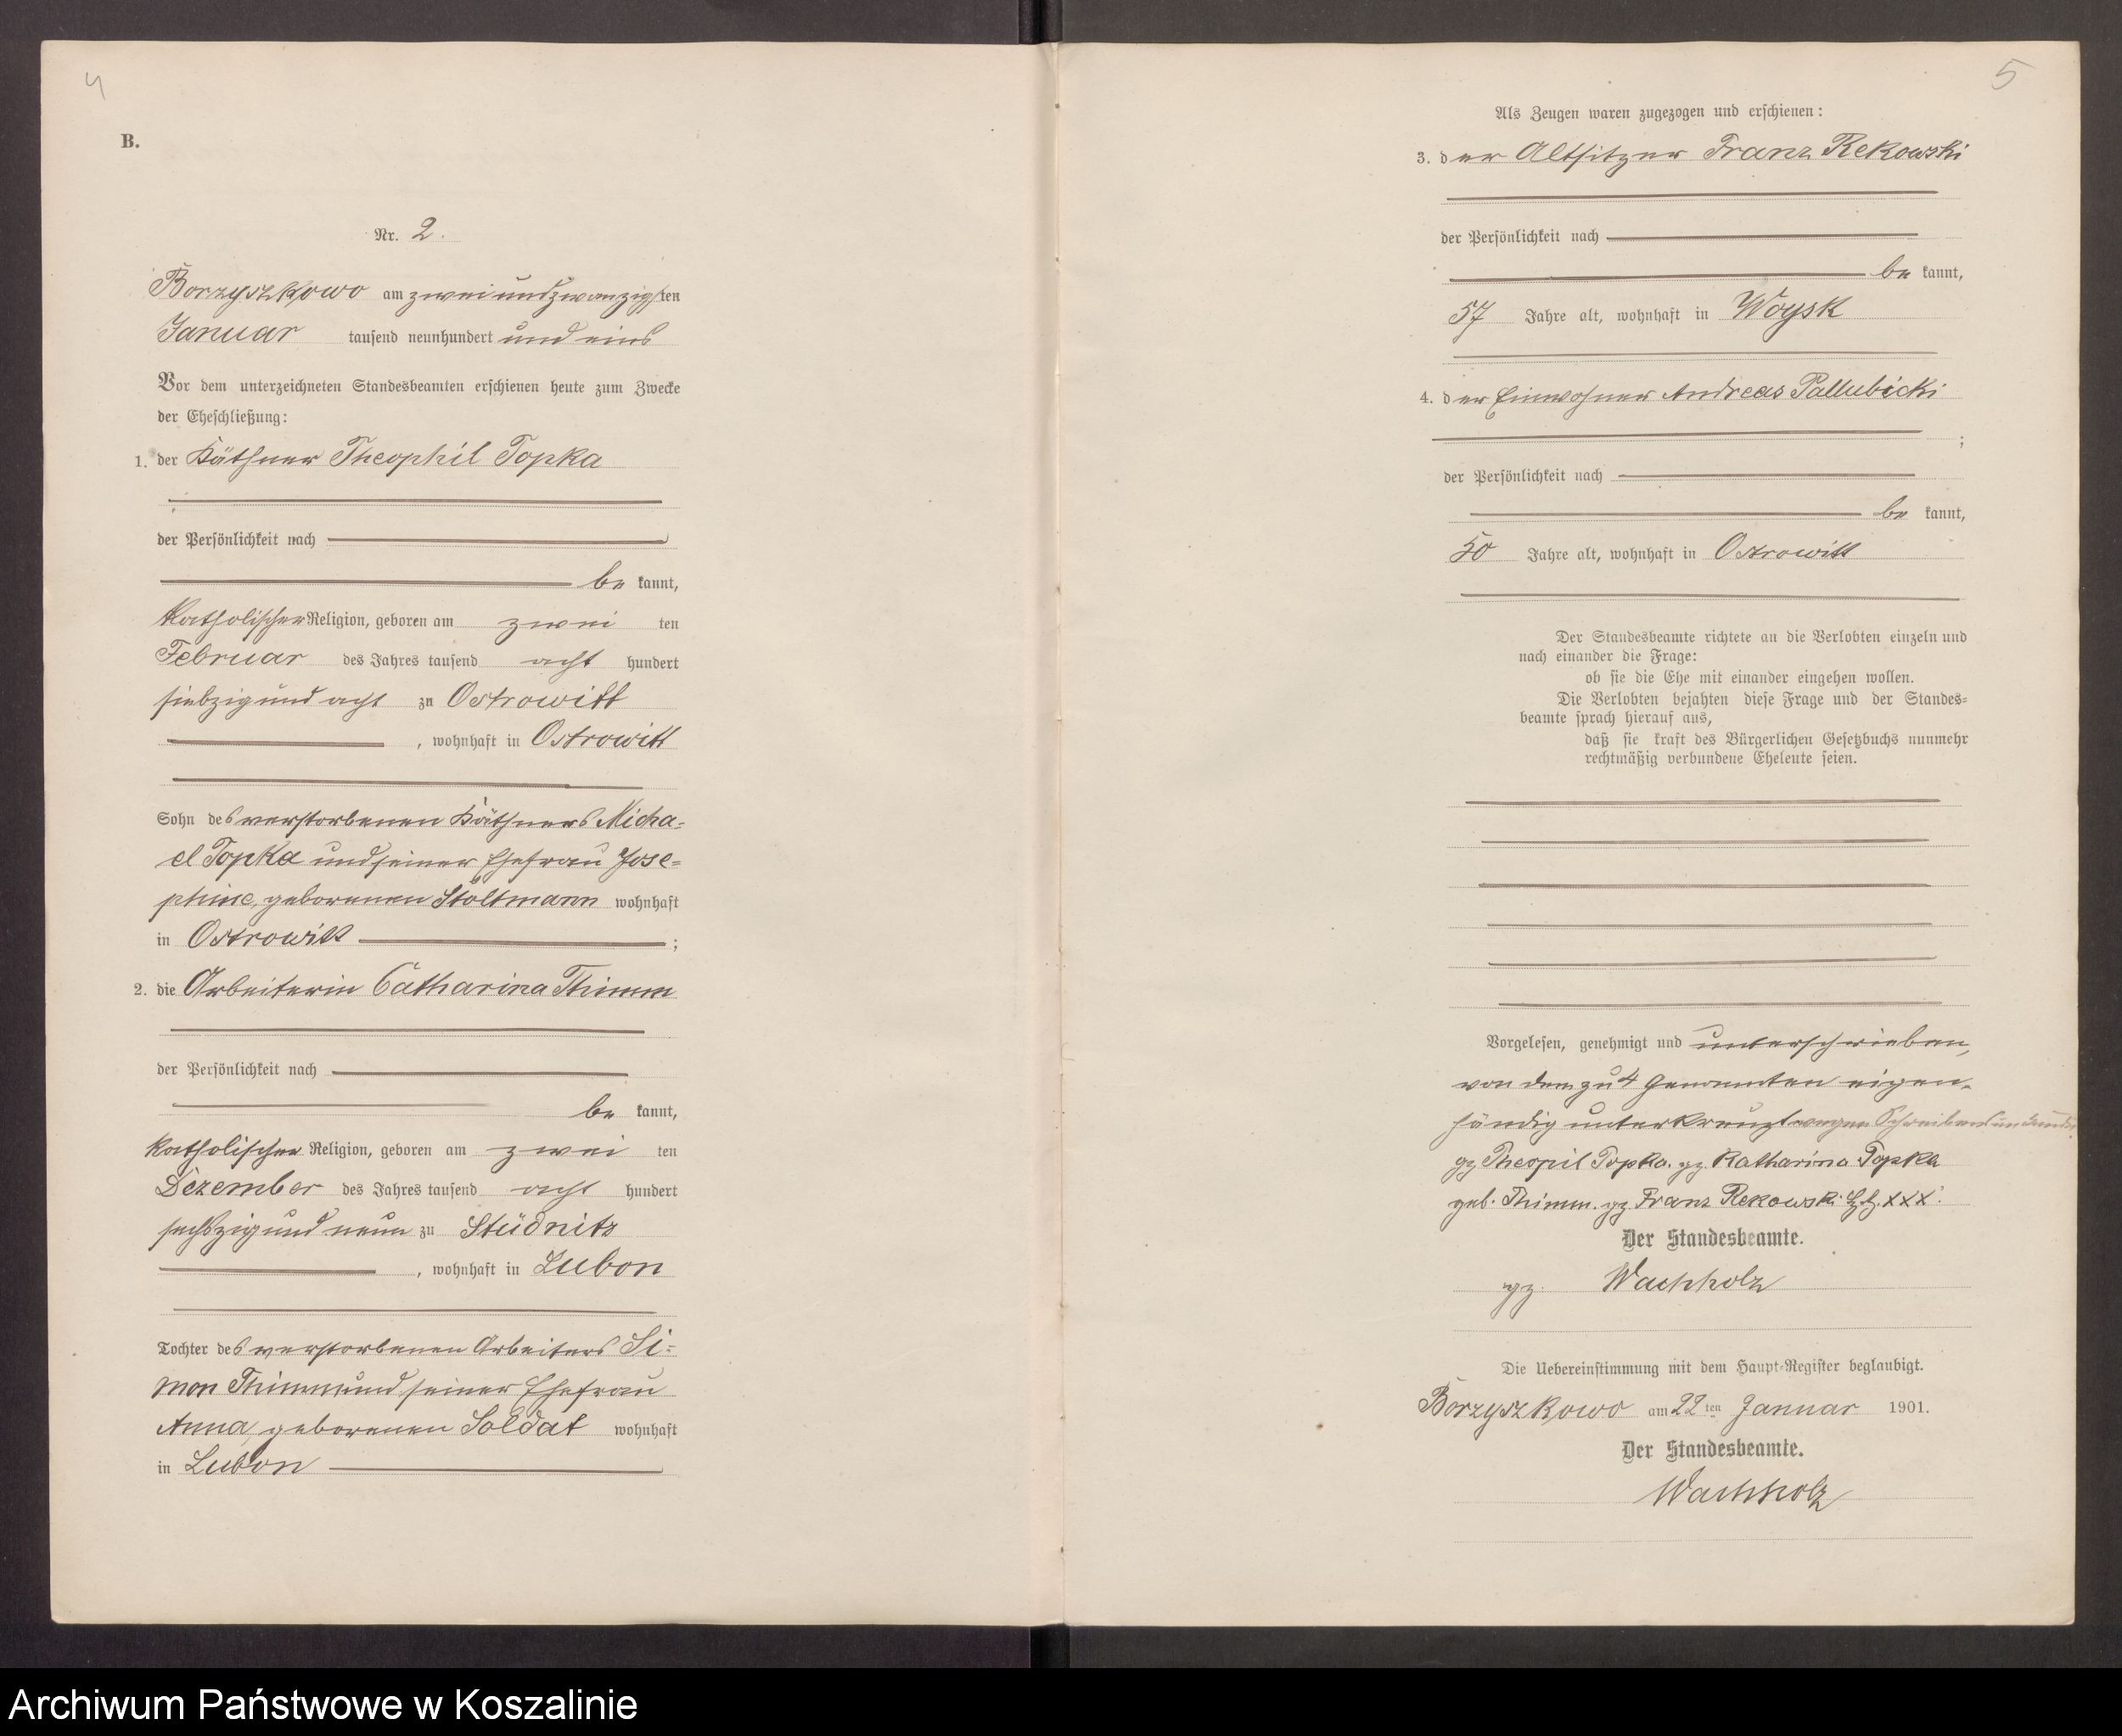 4
B.
Nr. 2.
Borzyszkowo am zweiundzwanzigsten
Januar tausend neunhundert und eins
Vor dem unterzeichneten Standesbeamten erschienen heute zum Zwecke
der Eheschließung:
1. der Käthner Theophil Topka
der Persönlichkeit nach
be kannt,
katholischer Religion, geboren am zwei ten
Februar des Jahres tausend acht hundert
siebzig und acht zu Ostrowitt
, wohnhaft in Ostrowitt
Sohn des verstorbenen Käthners Micha=
el Topka und seiner Ehefrau Jose=
phine, geborenen Stoltmann wohnhaft
in Ostrowitt ;
2. die Arbeiterin Catharina Thimm
der Persönlichkeit nach
be kannt,
katholischer Religion, geboren am zwei ten
Dezember des Jahres tausend acht hundert
sechszig und neun zu Stüdnitz
, wohnhaft in Lubon
Tochter des verstorbenen Arbeiters Si=
mon Thimm und seiner Ehefrau
Anna, geborenen Soldat wohnhaft
in Lubon
5
Als Zeugen waren zugezogen und erschienen:
3. der Altsitzer Franz Rekowski
der Persönlichkeit nach
be kannt,
57 Jahre alt, wohnhaft in Woysk
4. der Einwohner Andreas Pallubicki
;
der Persönlichkeit nach
be kannt,
50 Jahre alt, wohnhaft in Ostrowitt
Der Standesbeamte richtete an die Verlobten einzeln und
nach einander die Frage:
ob sie die Ehe mit einander eingehen wollen.
Die Verlobten bejahten diese Frage und der Standes=
beamte sprach hierauf aus,
daß sie kraft des Bürgerlichen Gesetzbuchs nunmehr
rechtmäßig verbundene Eheleute seien.
Vorgelesen, genehmigt und unterschrieben,
von dem zu 4 Genannten eigen=
händig unterkreuzt wegen Schreibensunkunde.
gz Theopil Topka. gz. Katharina Topka
geb. Thimm. gz Franz Rekowski XXX.
Der Standesbeamte.
gz. Wachholz
Die Uebereinstimmung mit dem Haupt-Register beglaubigt.
Borzyszkowo am 22ten Januar 1901.
Der Standesbeamte.
Wachholz
Archiwum Państwowe w Koszalinie